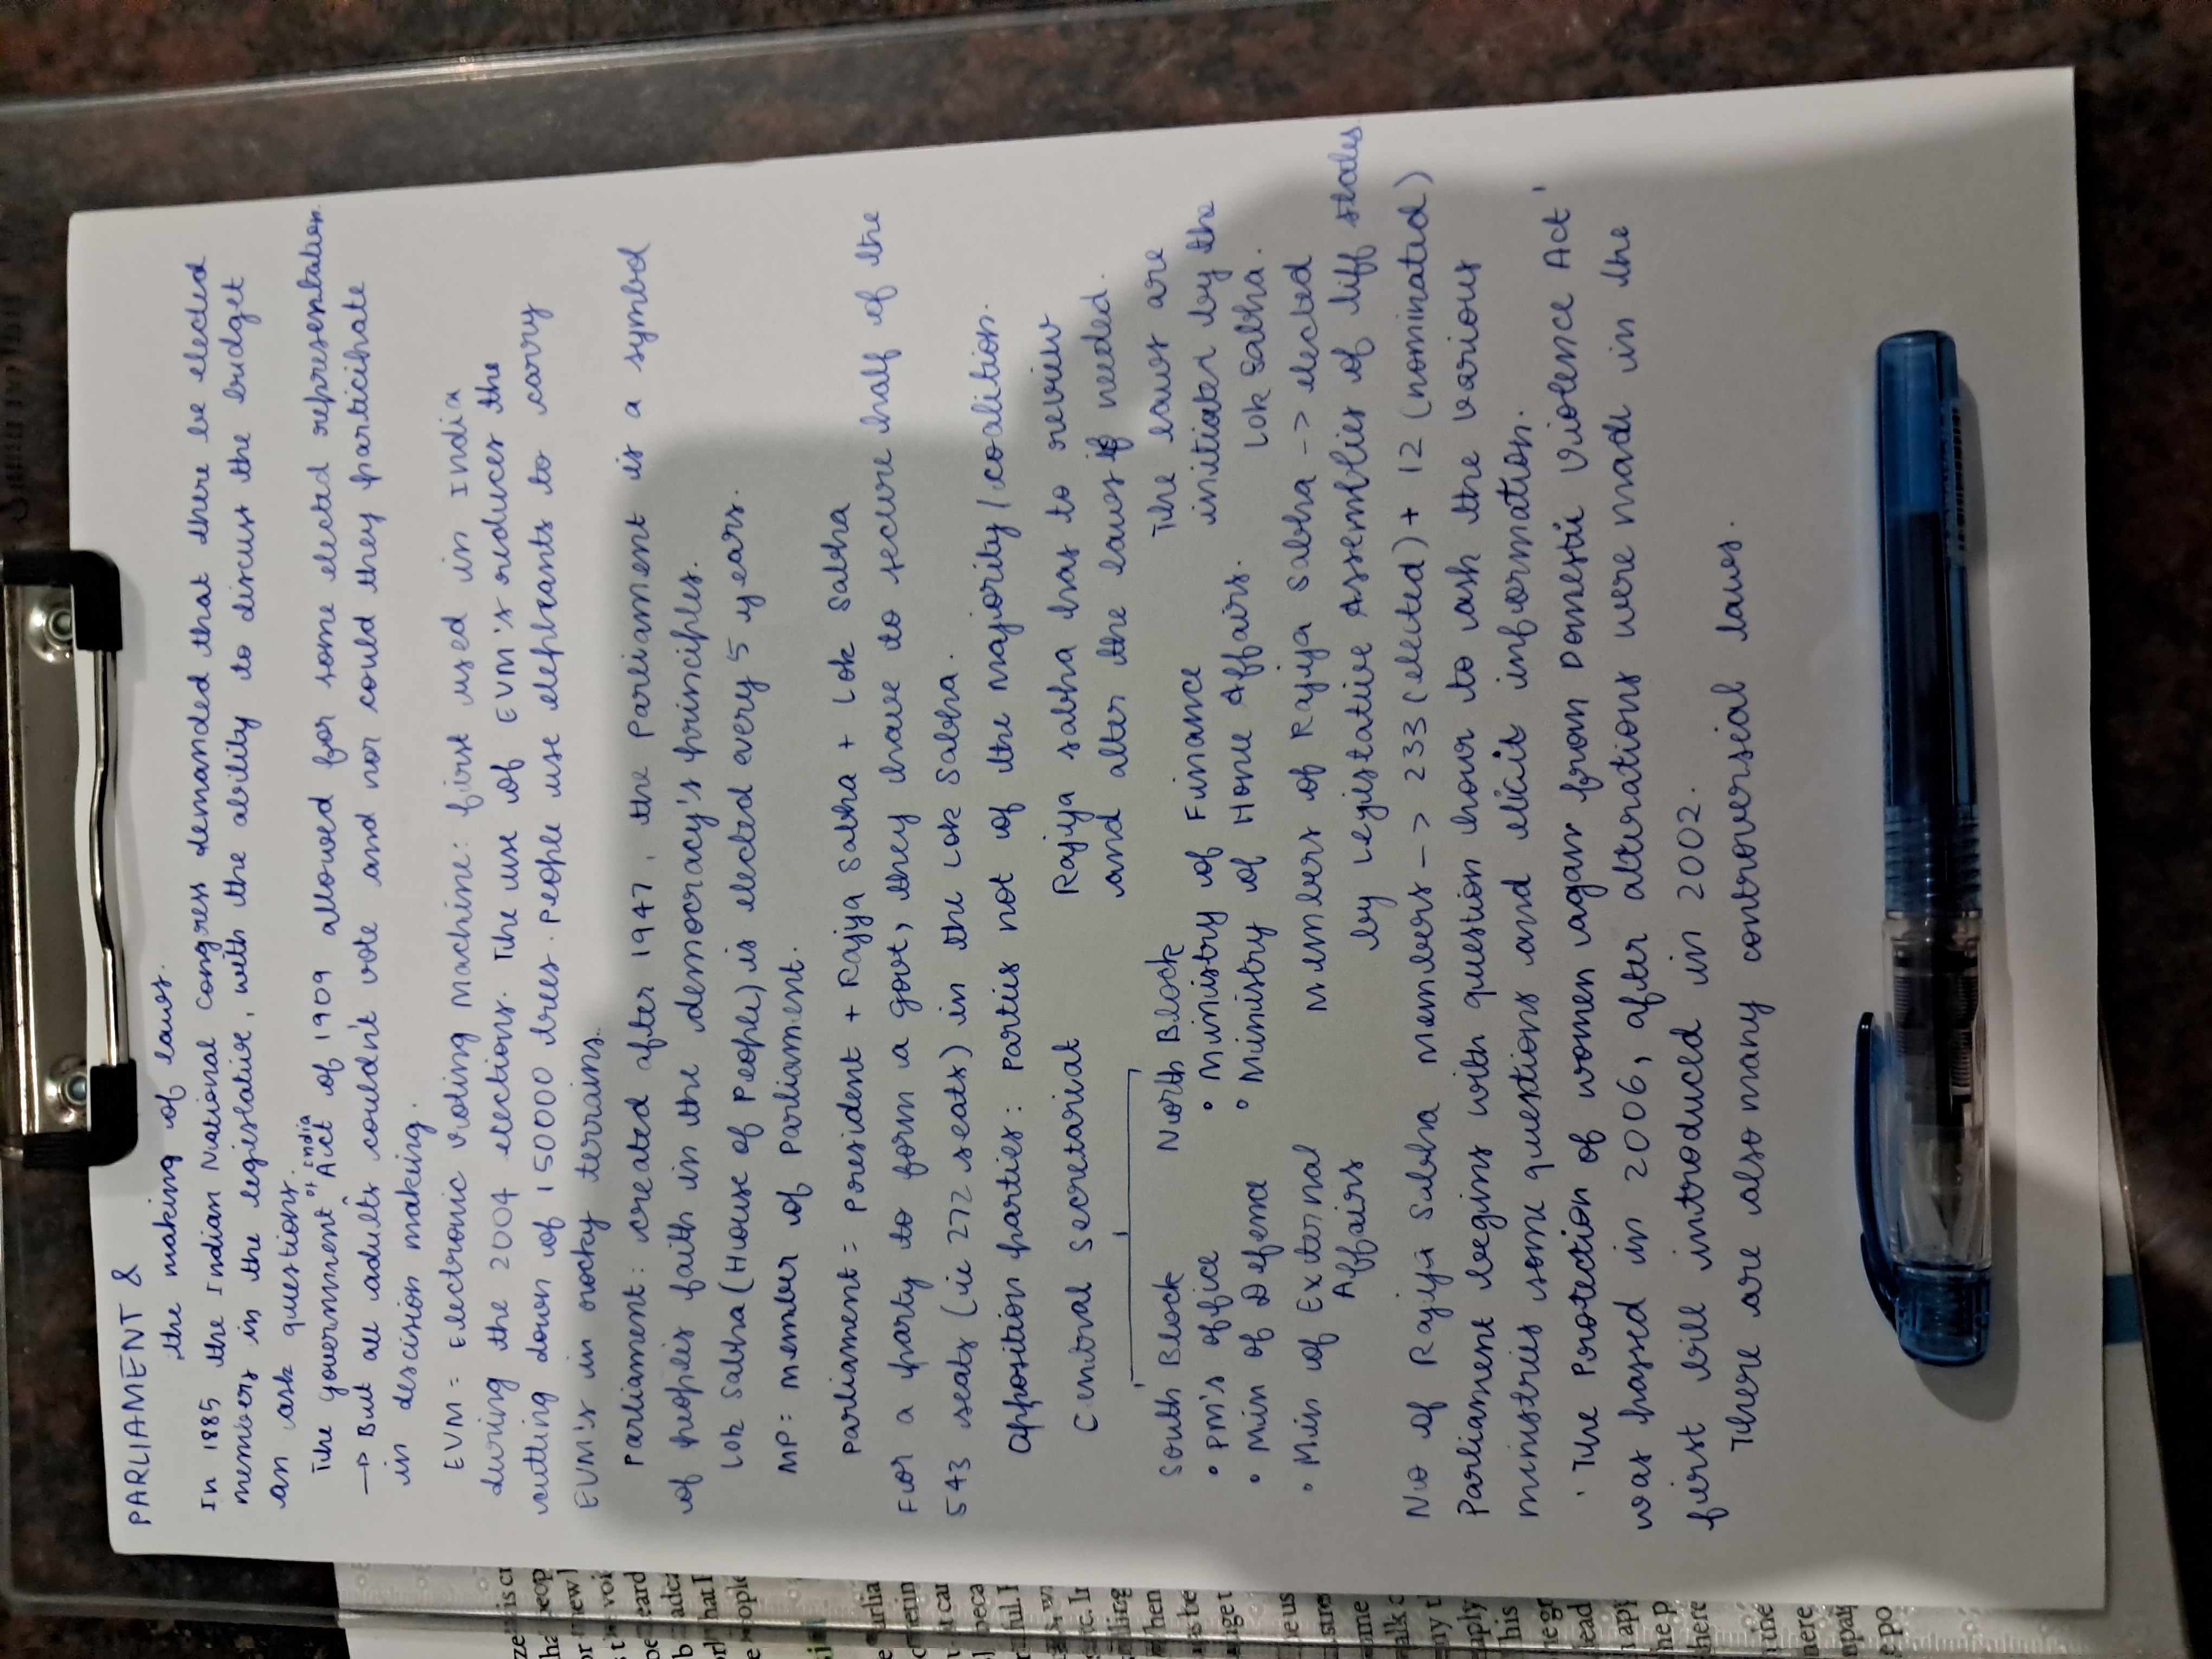 PARLIAMENT &
the making of laws.
In 1885 the Indian National Congress demanded that there be elected
members in the legislative, with the ability to discuss the budget
an ask questions.
The government of India Act of 1909 allowed for some elected representation.
→ But all adults couldn't vote and nor could they participate
in descision making.
EVM = Electronic Voting Machine: first used in India
during the 2004 elections. The use of EVM's reduces the
cutting down of 150000 trees. People use elephants to carry
EVM's in rocky terrains.
Parliament: created after 1947, the Parliament is a symbol
of peoples faith in the democracy's principles.
Lok Sabha (House of People) is elected every 5 years.
MP: member of Parliament.
Parliament = President + Rajya Sabha + Lok Sabha
For a party to form a govt, they have to secure half of the
543 seats (ie 272 seats) in the Lok Sabha.
Opposition parties: Parties not of the majority/coalition.
Central Secretariat
Rajya sabha has to review
and alter the laws if needed.
South Block
• PM's office
• Min of Defence
• Min of External
Affairs
North Block
• Ministry of Finance
• Ministry of Home Affairs.
The laws are
initiated by the
Lok Sabha.
Members of Rajya Sabha -> elected
by Legistative Assemblies of diff states.
No of Rajya Sabha members -> 233 (elected) + 12 (nominated)
Parliament begins with question hour to ask the various
ministries some questions and elicit information.
'The Protection of women agar from Domestic Violence Act'
was passed in 2006, after alterations were made in the
first bill introduced in 2002.
There are also many controversial laws.